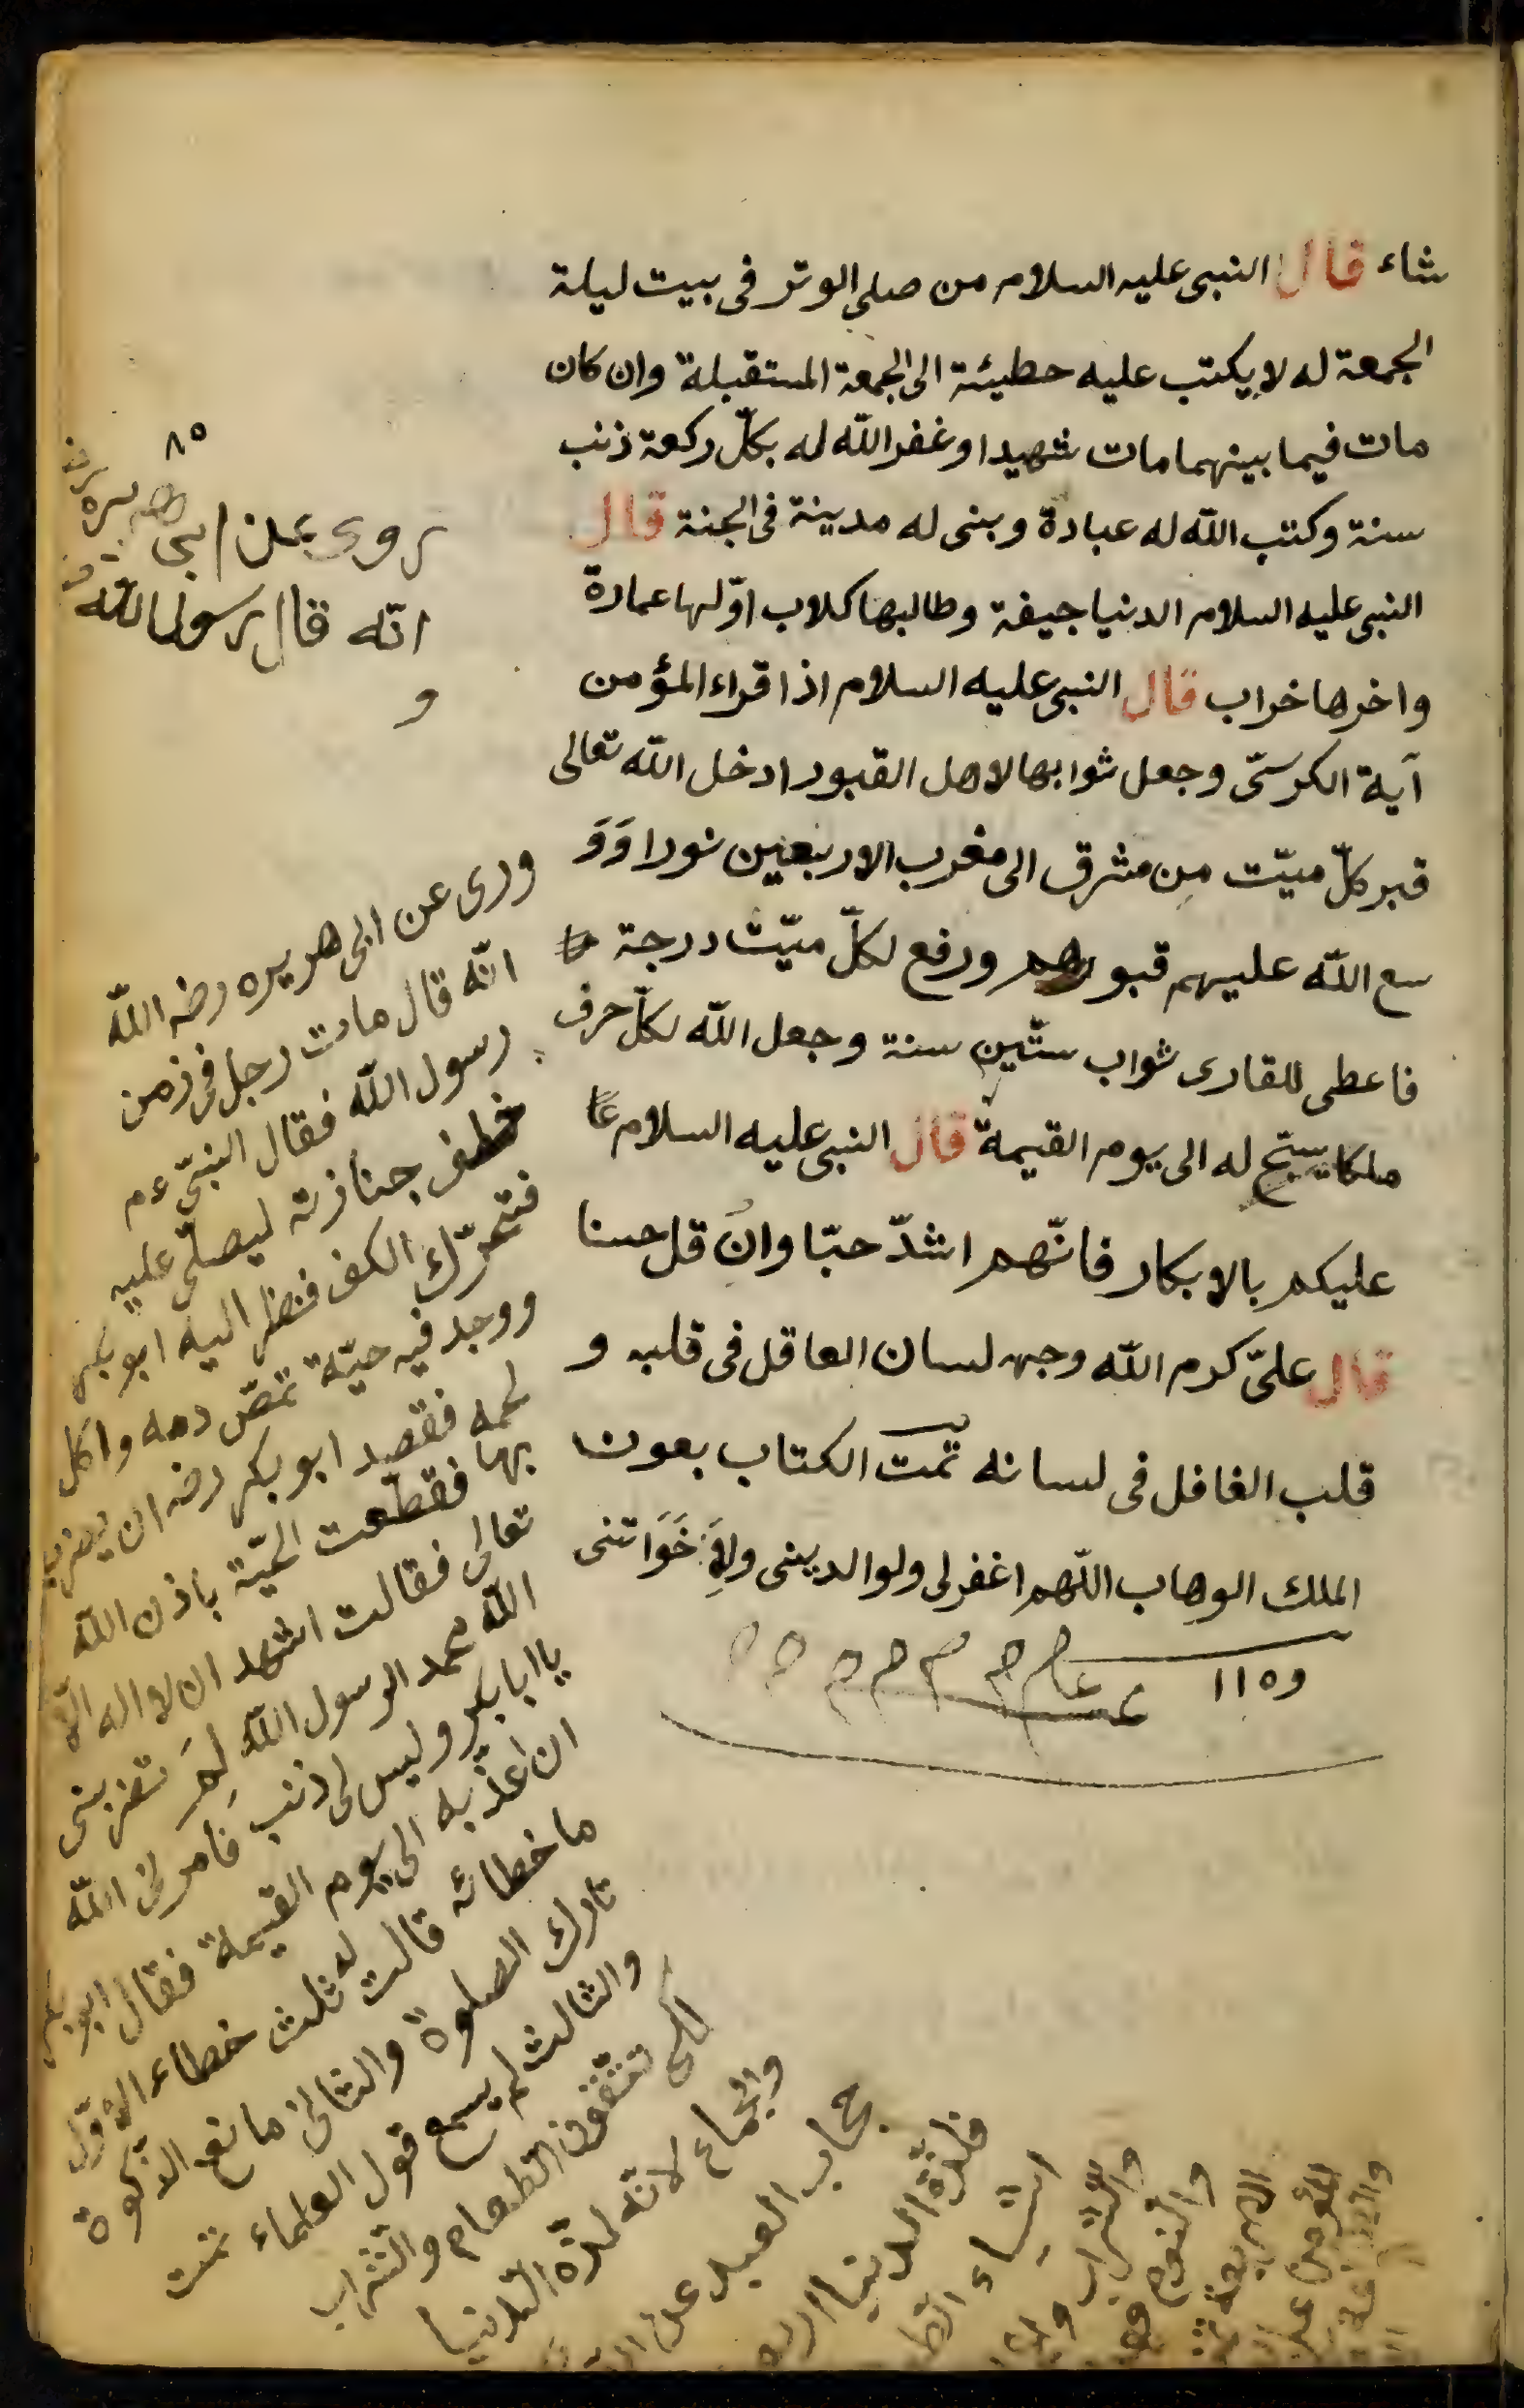 شاء قال النبى عليه السلام من صلى الوتر فى بيت ليلة
الجمعة له لا يكتب عليه حطيئة الى الجمعة المستقبلة وان كان
مات فيما بينهما مات شهيدا وغفر الله له بكلّ ركعة ذنب
سنة وكتب الله له عبادة وبنى له مدينة فى الجنة قال
النبى عليه السلام الدنيا جيفة وطالبها كلاب اوّلها عمارة
واخرها خراب قال النبى عليه السلام اذا قراء المؤمن
آية الكرسىّ وجعل ثوابها لاهل القبور ادخل الله تعالى
قبر كلّ ميّت مِن مشرق الى مغرب الاربعين نورا وَوَ
سع الله عليهم قبورهم ورفع لكلّ ميّت درجة
فاعطى للقارى ثواب ستّين سنة وجعل الله لكلّ حرف
ملكا يسبّح له الى يوم القيمة قال النبى عليه السلام
عليكم بالابكار فانّهم اشدّ حبّا وان قل حسنا
قال علىّ كرم الله وجهه لسان العاقل فى قلبه و
قلب الغافل فى لسانه تمّت الكتاب بعون
الملك الوهاب اللّهم اغفرلى ولوالدينى ولاِخَوَاتنى
١١٥٩
٨٥
روى عن ابى
انّه قال رسول الله
و
ورى عن ابى هريره رضه الله
انّه قال مات رجل فى زمن
رسول الله فقال النبىّ عم
جنازته ليصلّى عليه
فتحرّك الكفن فنظر اليه ابو بكر
ووجد فيه حيّة تمصّ دمه واكل
لحمه فقصد ابو بكر رضه ان يضرب
بها فقطّعت الحيّة باذن الله
تعالى فقالت اشهد ان لا اله الّا
الله محمد الرسول الله لِمَ تضربنى
يا ابا بكر وليس لى ذنب فامرنى الله
ان اعذّبه الى يوم القيمة فقال ابو بكر
ما خطائه قالت له ثلث خطاء الاوّل
تارك الصلوة والثانى مانع الزكوة
والثالث لم يسمع قول العلماء تمت
الطعام والشراب
والجماع لانّه لذّة الدنيا
حجاب العبد عن
فلذّة الدنيا
اشياء
والشراب
والنوم
الاربعة
المؤمن